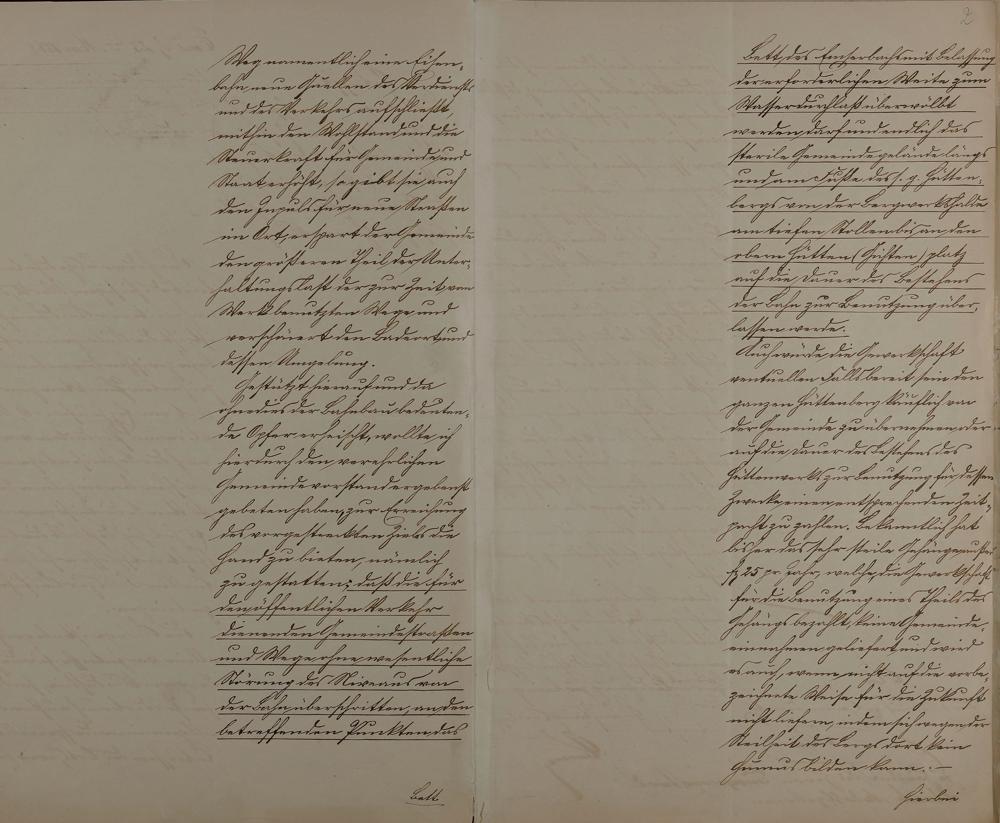 Weg namentlich eine Eisen-
bahn neue Quellen des Verdienstes
und des Verkehrs aufschließt
mithin den Wohlstand und die
Steuerkraft für Gemeinde und
Staat erhöht, so giebt sie auch
den Impuls für neue Straßen
im Ort, erspart der Gemeinde
den größeren Theil der Unter-
haltungslast der zur Zeit vom
Werk benutzten Wege und
verschönert den Badeort und
dessen Umgebung.
Gestützt hierauf und da
ohnedies der Bahnbau bedeuten-
de Opfer erheischt, wollte ich
hierdurch den verehrlichen
Gemeindevorstand ergebenst
gebeten haben, zur Erreichung
des vorgesteckten Ziels die
Hand zu bieten, nämlich
zu gestatten: daß die für
den öffentlichen Verkehr
dienenden Gemeindestraßen
und Wege ohne wesentliche
Störung des Niveaus von
der Bahn überschritten, an den
betreffenden Punkten das
Bett
2
Bett des Emserbachs mit Belassung
der erforderlichen Weite zum
Wasserdurchlaß überwölbt
werden darf und endlich das
sterile Gemeindegelände längs
und am Fuße des s. g. Hütten-
bergs von der Bergwerkshalde
am tiefen Stollen bis an den
obern Hütten (Gichten) platz
auf die Dauer des Bestehens
der Bahn zur Benutzung über-
lassen werde.
Auch würde die Gewerkschaft
eventuellen Falls bereit sein den
ganzen Hüttenberg käuflich von
der Gemeinde zu übernehmen oder
auf die Dauer des Bestehens des
Hüttenwerks zur Benutzung für dessen
Zwecke einen entsprechenden Zeit-
pacht zu zahlen. Bekanntlich hat
bisher das sehr steile Gehänge außer
25 pr. Jahr, welche die Gewerkschaft
für die Benutzung eines Theils des
Gehängs bezahlt, keine Gemeinde-
einnahmen geliefert und wird
es auch, wenn nicht auf die vorbe-
zeichnete Weise für die Zukunft
nicht liefern, indem sich wegen der
Steilheit des Bergs dort kein
Humus bilden kann. —
Hierbei